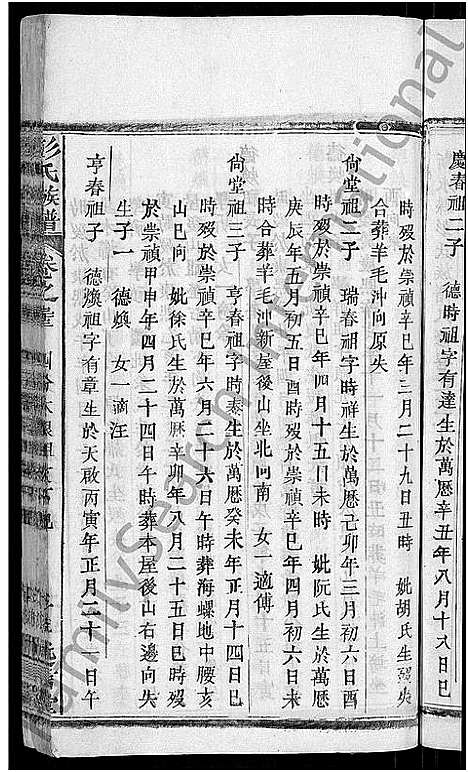 慶春祖二子 德時祖字有達生於萬曆辛丑年八月十六日巳
時歿於崇禎辛巳年三月二十九日丑時 妣胡氏生歿失
合葬羊毛沖向原失
尙堂祖二子 瑞春祖字時祥生於萬曆己卯年三月初六日酉
時歿於崇禎辛巳年四月十五日未時 妣阮氏生於萬曆
庚辰年五月初五日酉時歿於崇禎辛巳年四月初六日未
時合葬羊毛沖新屋後山坐北向南 女一適傅
尙堂祖三子 亨春祖字時泰生於萬曆癸未年正月十四日巳
時歿於崇禎辛巳年六月二十六日午時葬海螺地中腰亥
山巳向 妣徐氏生於萬曆辛卯年八月二十五日巳時歿
於崇禎甲申年四月二十四日午時葬本屋後山右邊向失
生子一 德煥 女一適汪
亨春祖子 德煥祖字有章生於天啟丙寅年正月二十一日午
彭氏族譜 卷之
FamilySearch International